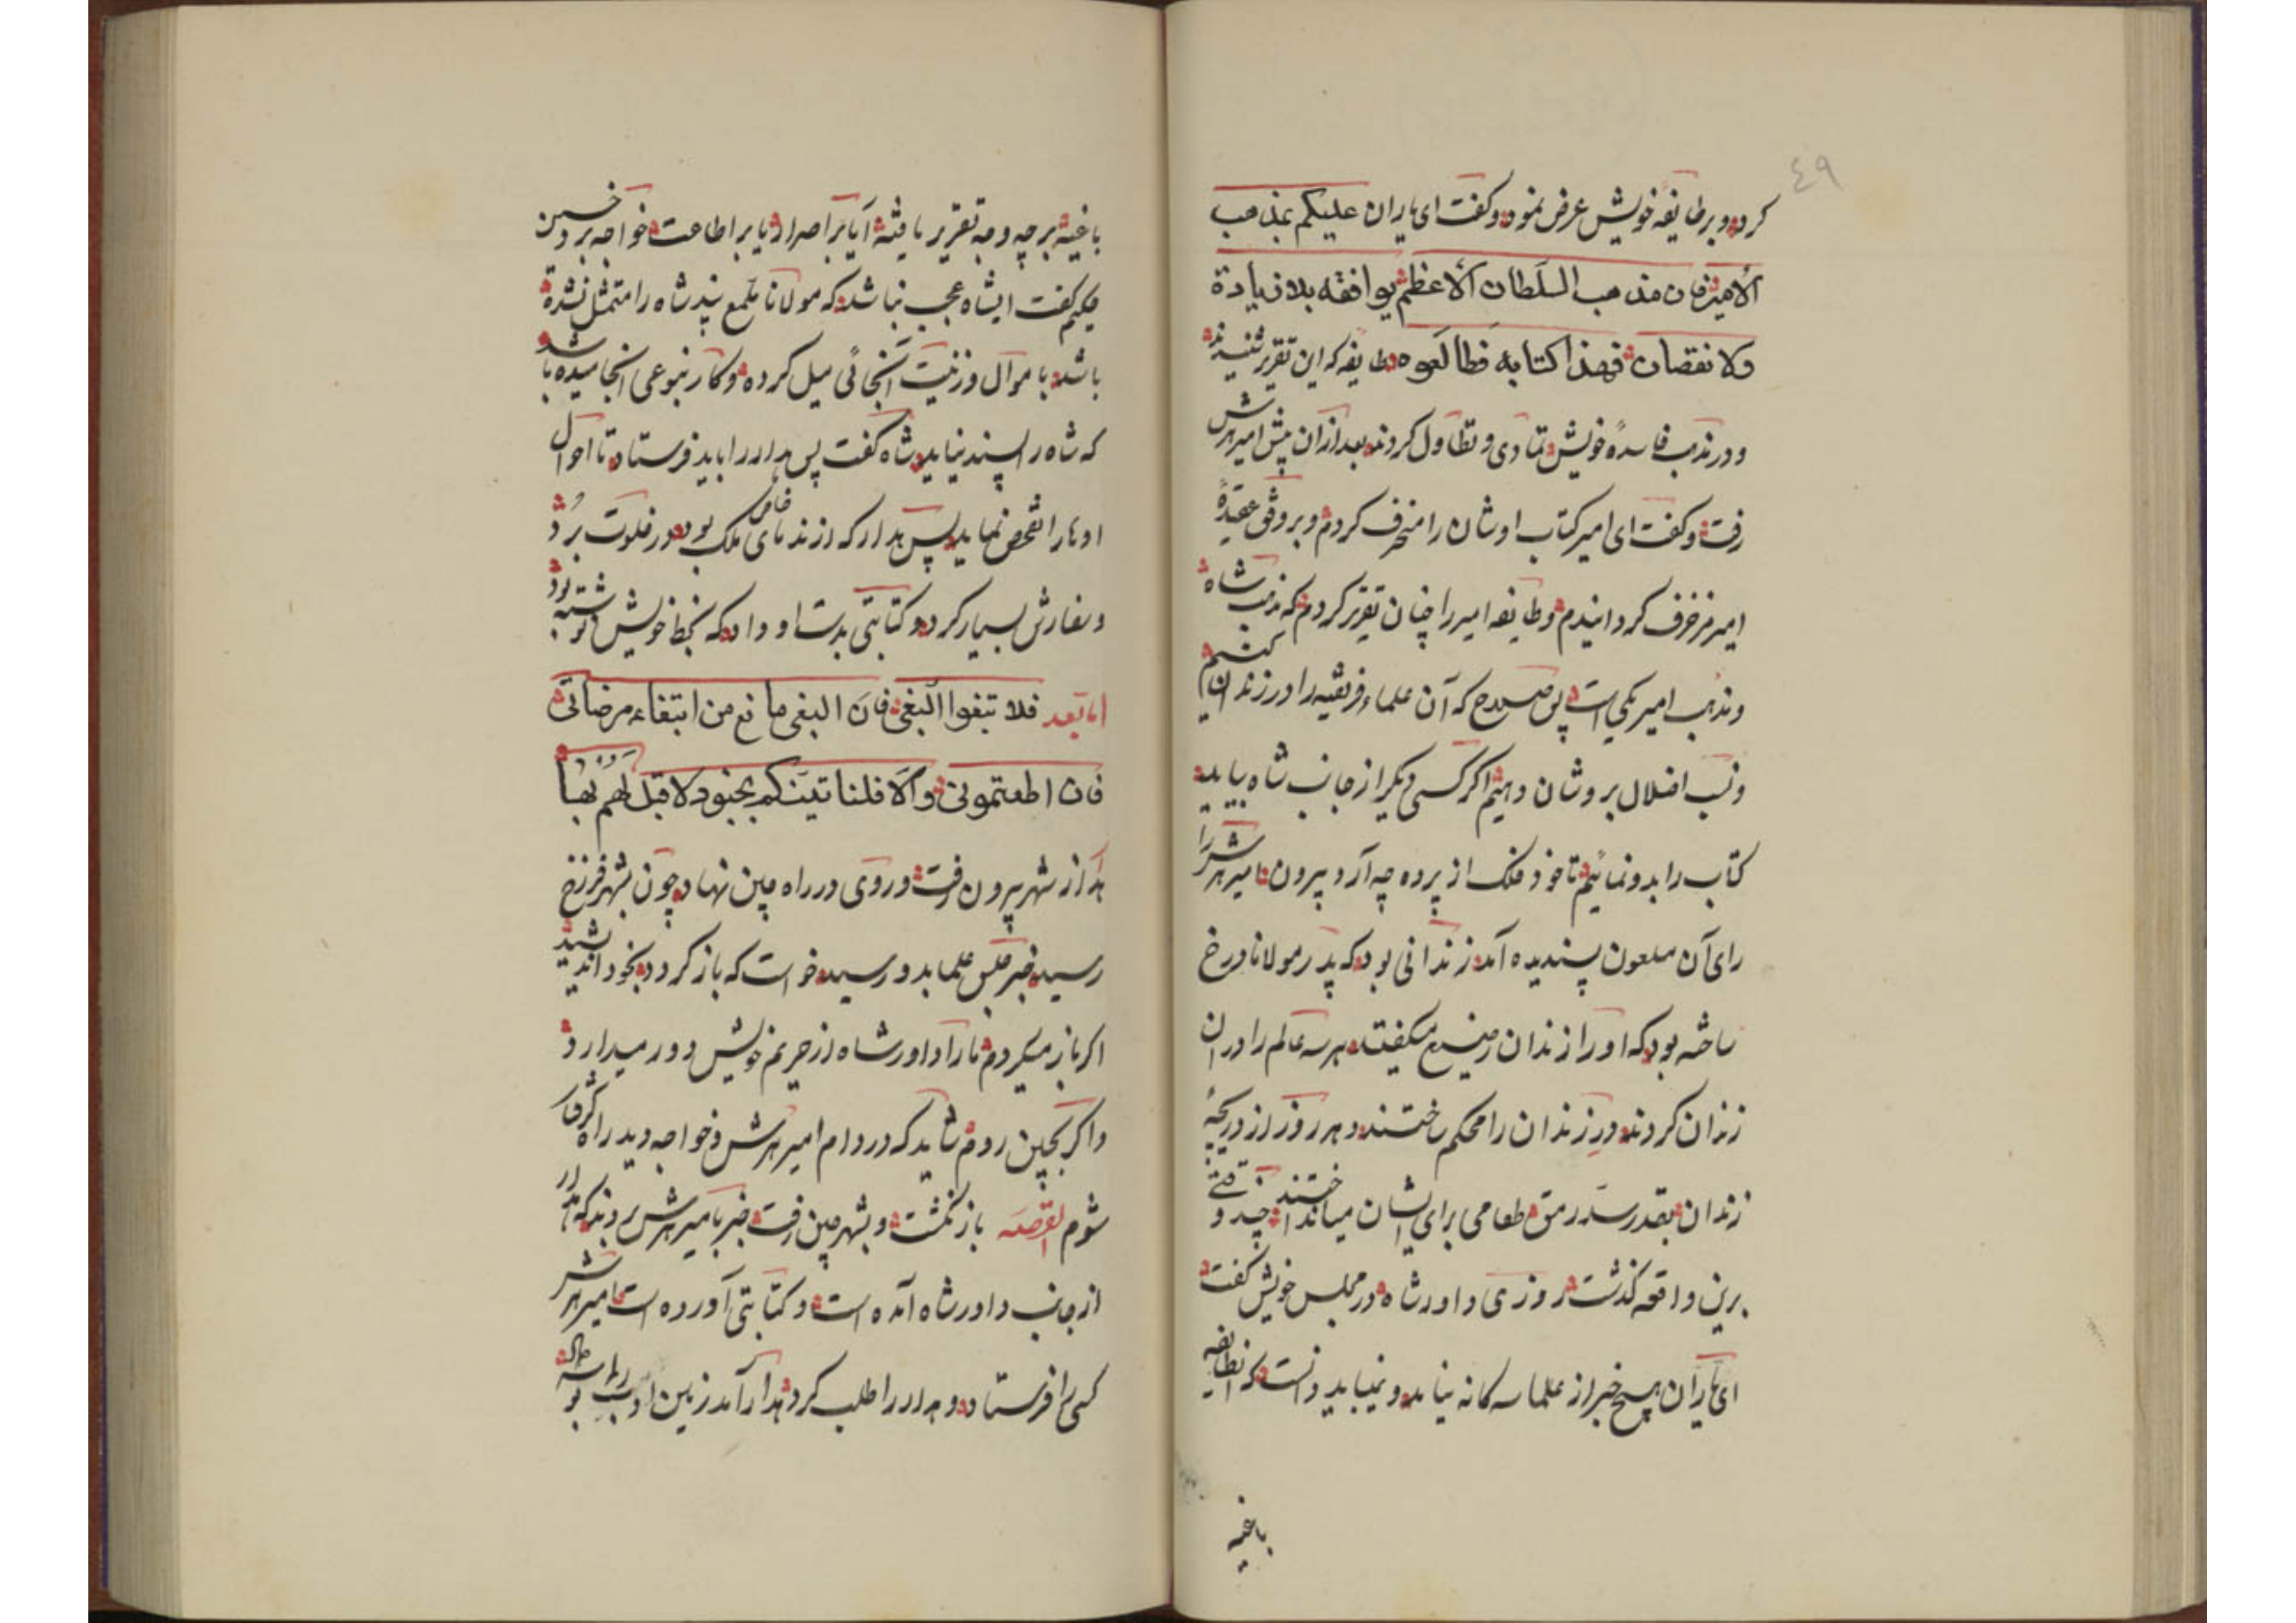 ٤٩
کرد و بر طایفه خویش عرض نمود و کفت ای یاران علیکم بمذهب
الامیر فان مذهب السلطان الاعظم یوافقه بلا زیادة
ولا نقصان فهذا کتابه فطالعوه طایفه که این تقریر شنیدند
و در مذهب فاسدهٔ خویش تمادی و تطاول کردند بعد از آن پیش امیر هرش
رفت و کفت ای امیر کتاب اوشان را منحرف کردم و بر وفق عقیدهٔ
امیر مزخرف کردانیدم و طایفه امیر را چنان تقریر کردم که مذهب شاه
و مذهب امیر یکی است پس که آن علماء فریقیه را در زندان کنیم
و نسب اضلال بروشان دهیم اکر کسی دیکر از جانب شاه بیاید
کتاب را بدو نمائیم تا خود فلک از پرده چه آرد بیرون امیر هرش را
رای آن ملعون پسندیده آمد زندانی بود که پدر مولانا درخ
ساخته بود که او را زندان میکفتند هر سه عالم را در آن
زندان کردند در زندان را محکم ساختند و هر روز از دریچهٔ
زندان بقدر سد رمق طعامی برای ایشان میانداختند چند وقتی
برین واقعه کذشت روزی داور شاه در مجلس خویش کفت
ای یاران هیچ خبر از علما سه کانه نیامد و نمیباید دانست که انطایفه
باغیه
باغیه بر چه وجه تقریر یافته آیا بر اصرار یا بر اطاعت خواجه بردحسین
حکیم کفت ایشاه عجب نباشد که مولانا ملمع پند شاه را متمثل نشده
باشد باموال و زینت آنجائی میل کرده و کار بنوعی انجامیده باشد
که شاه را پسند نیاید شاه کفت پس هدار را باید فرستاد تا احوال
اوها را تفحص نماید پس هدار که از ندمای خاص ملک بود در خلوت برد
و سفارش بسیار کرد و کتابتی بدست او داد که بخط خویش نوشته بود
اما بعد فلا تبغوا البغی فان البغی مانع من ابتغاء مرضاتی
فان اطعتمونی والا فلناتینکم بجنود لا قبل لهم بها
هدار از شهر بیرون رفت و روی در راه چین نهاد چون بشهر فرزخ
رسید خبر حبس علما بدو رسید خواست که باز کردد بخود اندیشید
اکر باز میکردم مارا داور شاه از حریم خویش دور میدارد
و اکر بچین روم شاید که در دام امیر هرش و خواجه دیدراه کرفتار
شوم القصه باز نکشت و بشهر چین رفت خبر بامیر هرش بردند که هدار
از جانب داور شاه آمده است و کتابتی آورده است امیر هرش
کسی را فرستاد و هدار را طلب کرد هدار آمد زمین ادب بوسه